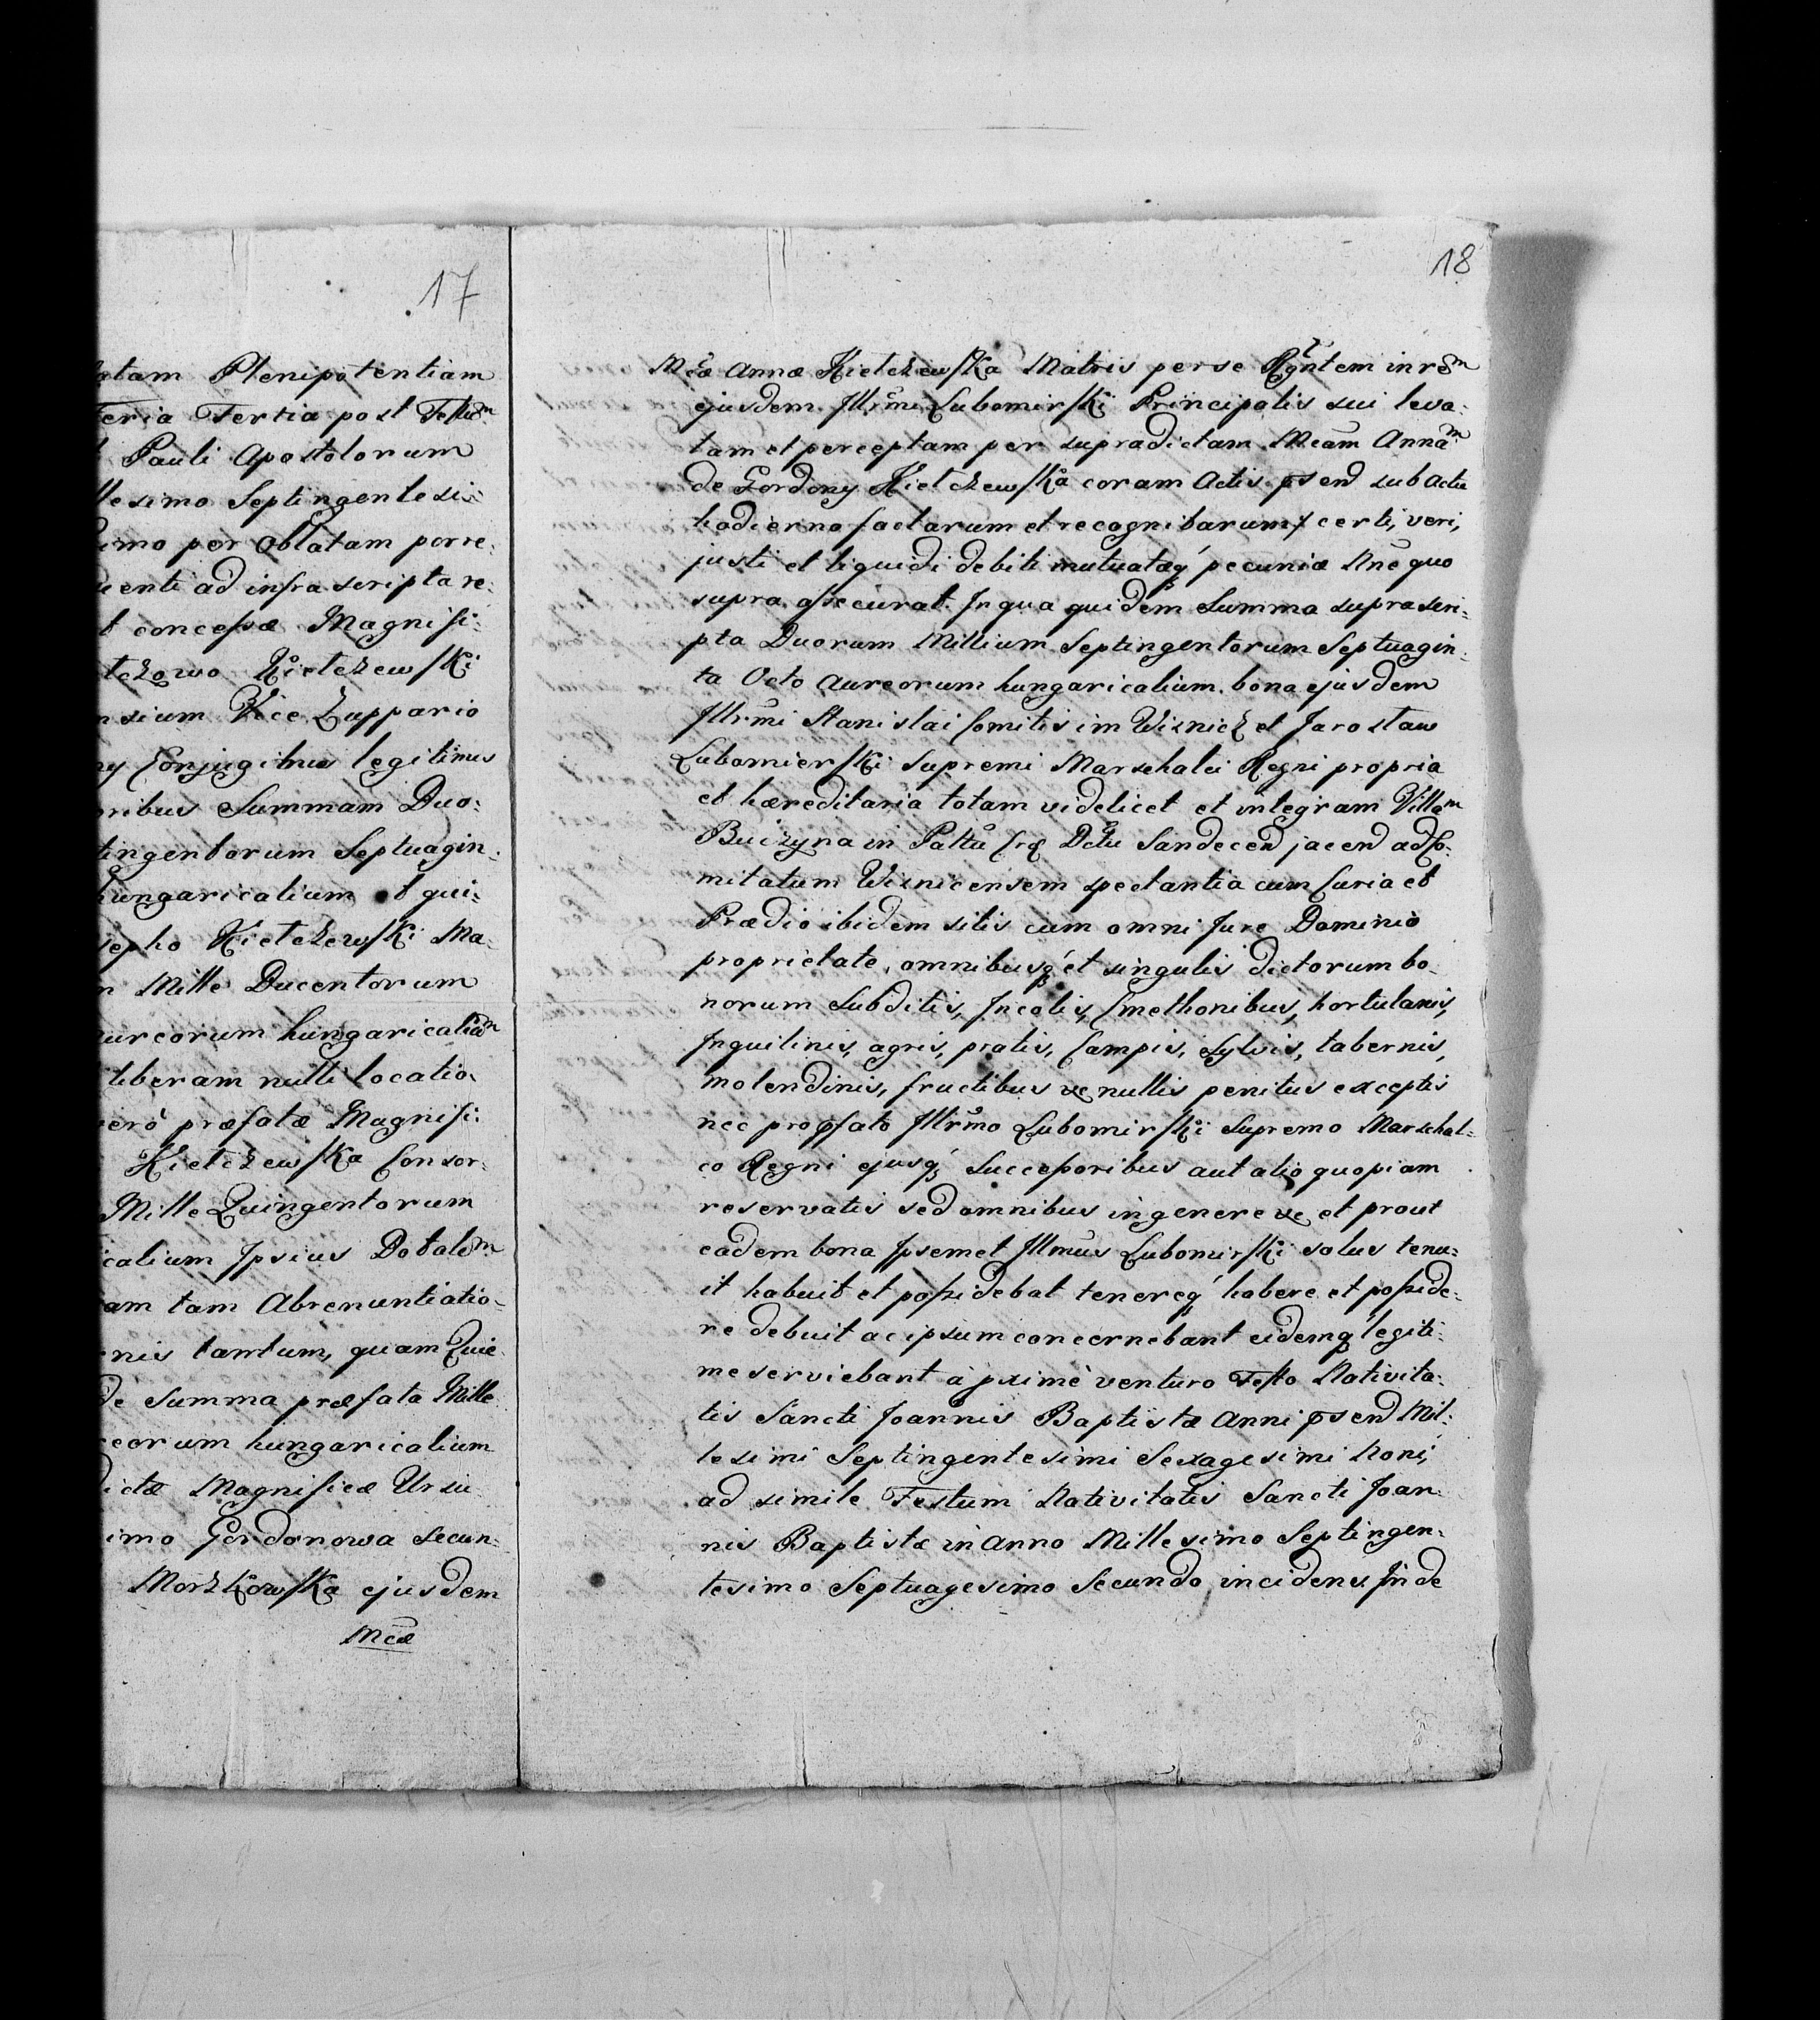 17
atam Plenipotentiam
Feria Tertia post Festum
Pauli Apostolorum
llesimo Septingentesi=
imo per Oblatam porre=
uenti ad infra scripta re=
t concessæ Magnifi=
tczowo Kietczewski
nsium Vice Zuppario
ny Conjugibus legitimis
oribus Summam Duo=
tingentorum Septuagin=
hungaricalium et qui=
sepho Kietczewski Ma=
n Mille Ducentorum
ureorum hungaricalium
liberam nulli locatio=
verò præfatæ Magnifi=
Kietczewska Consor=
Mille Quingentorum
calium Ipsius Dotalem
am tam Abrenuntiatio=
nis tantum, quam Quie=
de Summa præfata Mille
eorum hungaricalium
ictæ Magnificæ Ursu=
imo Gordonowa secun=
Morzkowska ejusdem
Mcæ
18
Mcæ Annæ Kietczewska Matris per se Rgntem in rem
ejusdem Illrmi Lubomirski Principalis sui leva=
tam et perceptam per supradictam Mcam Annam
de Gordony Kietczewska coram Actis psend sub actu
hodierno factarum et recognitarum certi, veri,
justi et liquidi debiti mutuatæq pecuniæ Nne quo
supra assecurat. In qua quidem Summa suprascri=
pta Duorum Millium Septingentorum Septuagin=
ta Octo Aureorum hungaricalium bona ejusdem
Illrmi Stanislai Comitis im Wisnicz et Jarostaw
Lubomierski Supremi Marschalci Regni propria
et hæreditaria totam videlicet et integram Villam
Buczyna in Palttu Crq Dctu Sandecend jacend ad Co=
mitatum Wisnicensem spectantia cum Curia et
Prædio ibidem sitis cum omni Jure Dominio
proprietate, omnibusq et singulis dictorum bo=
norum Subditis, Incolis, Cmethonibus, hortulanis,
Inquilinis, agris, pratis, Campis, Sylvis, tabernis,
molendinis, fructibus ve nullis penitus exceptis
nec pro pfato Illrmo Lubomirski Supremo Marschal=
co Regni ejusq Successoribus aut alio quopiam
reservatis sed omnibus in genere ve et prout
eadem bona Ipsemet Illmus Lubomirski solus tenu=
it habuit et possidebat tenereq habere et posside=
re debuit ac ipsum concernebant eidemq legiti=
me serviebant à pximè venturo Festo Nativita=
tis Sancti Joannis Baptistæ Anni psend Mil=
lesimi Septingentesimi Sexagesimi Noni,
ad simile Festum Nativitatis Sancti Joan=
nis Baptistæ in Anno Millesimo Septingen=
tesimo Septuagesimo Secundo incidens Inde